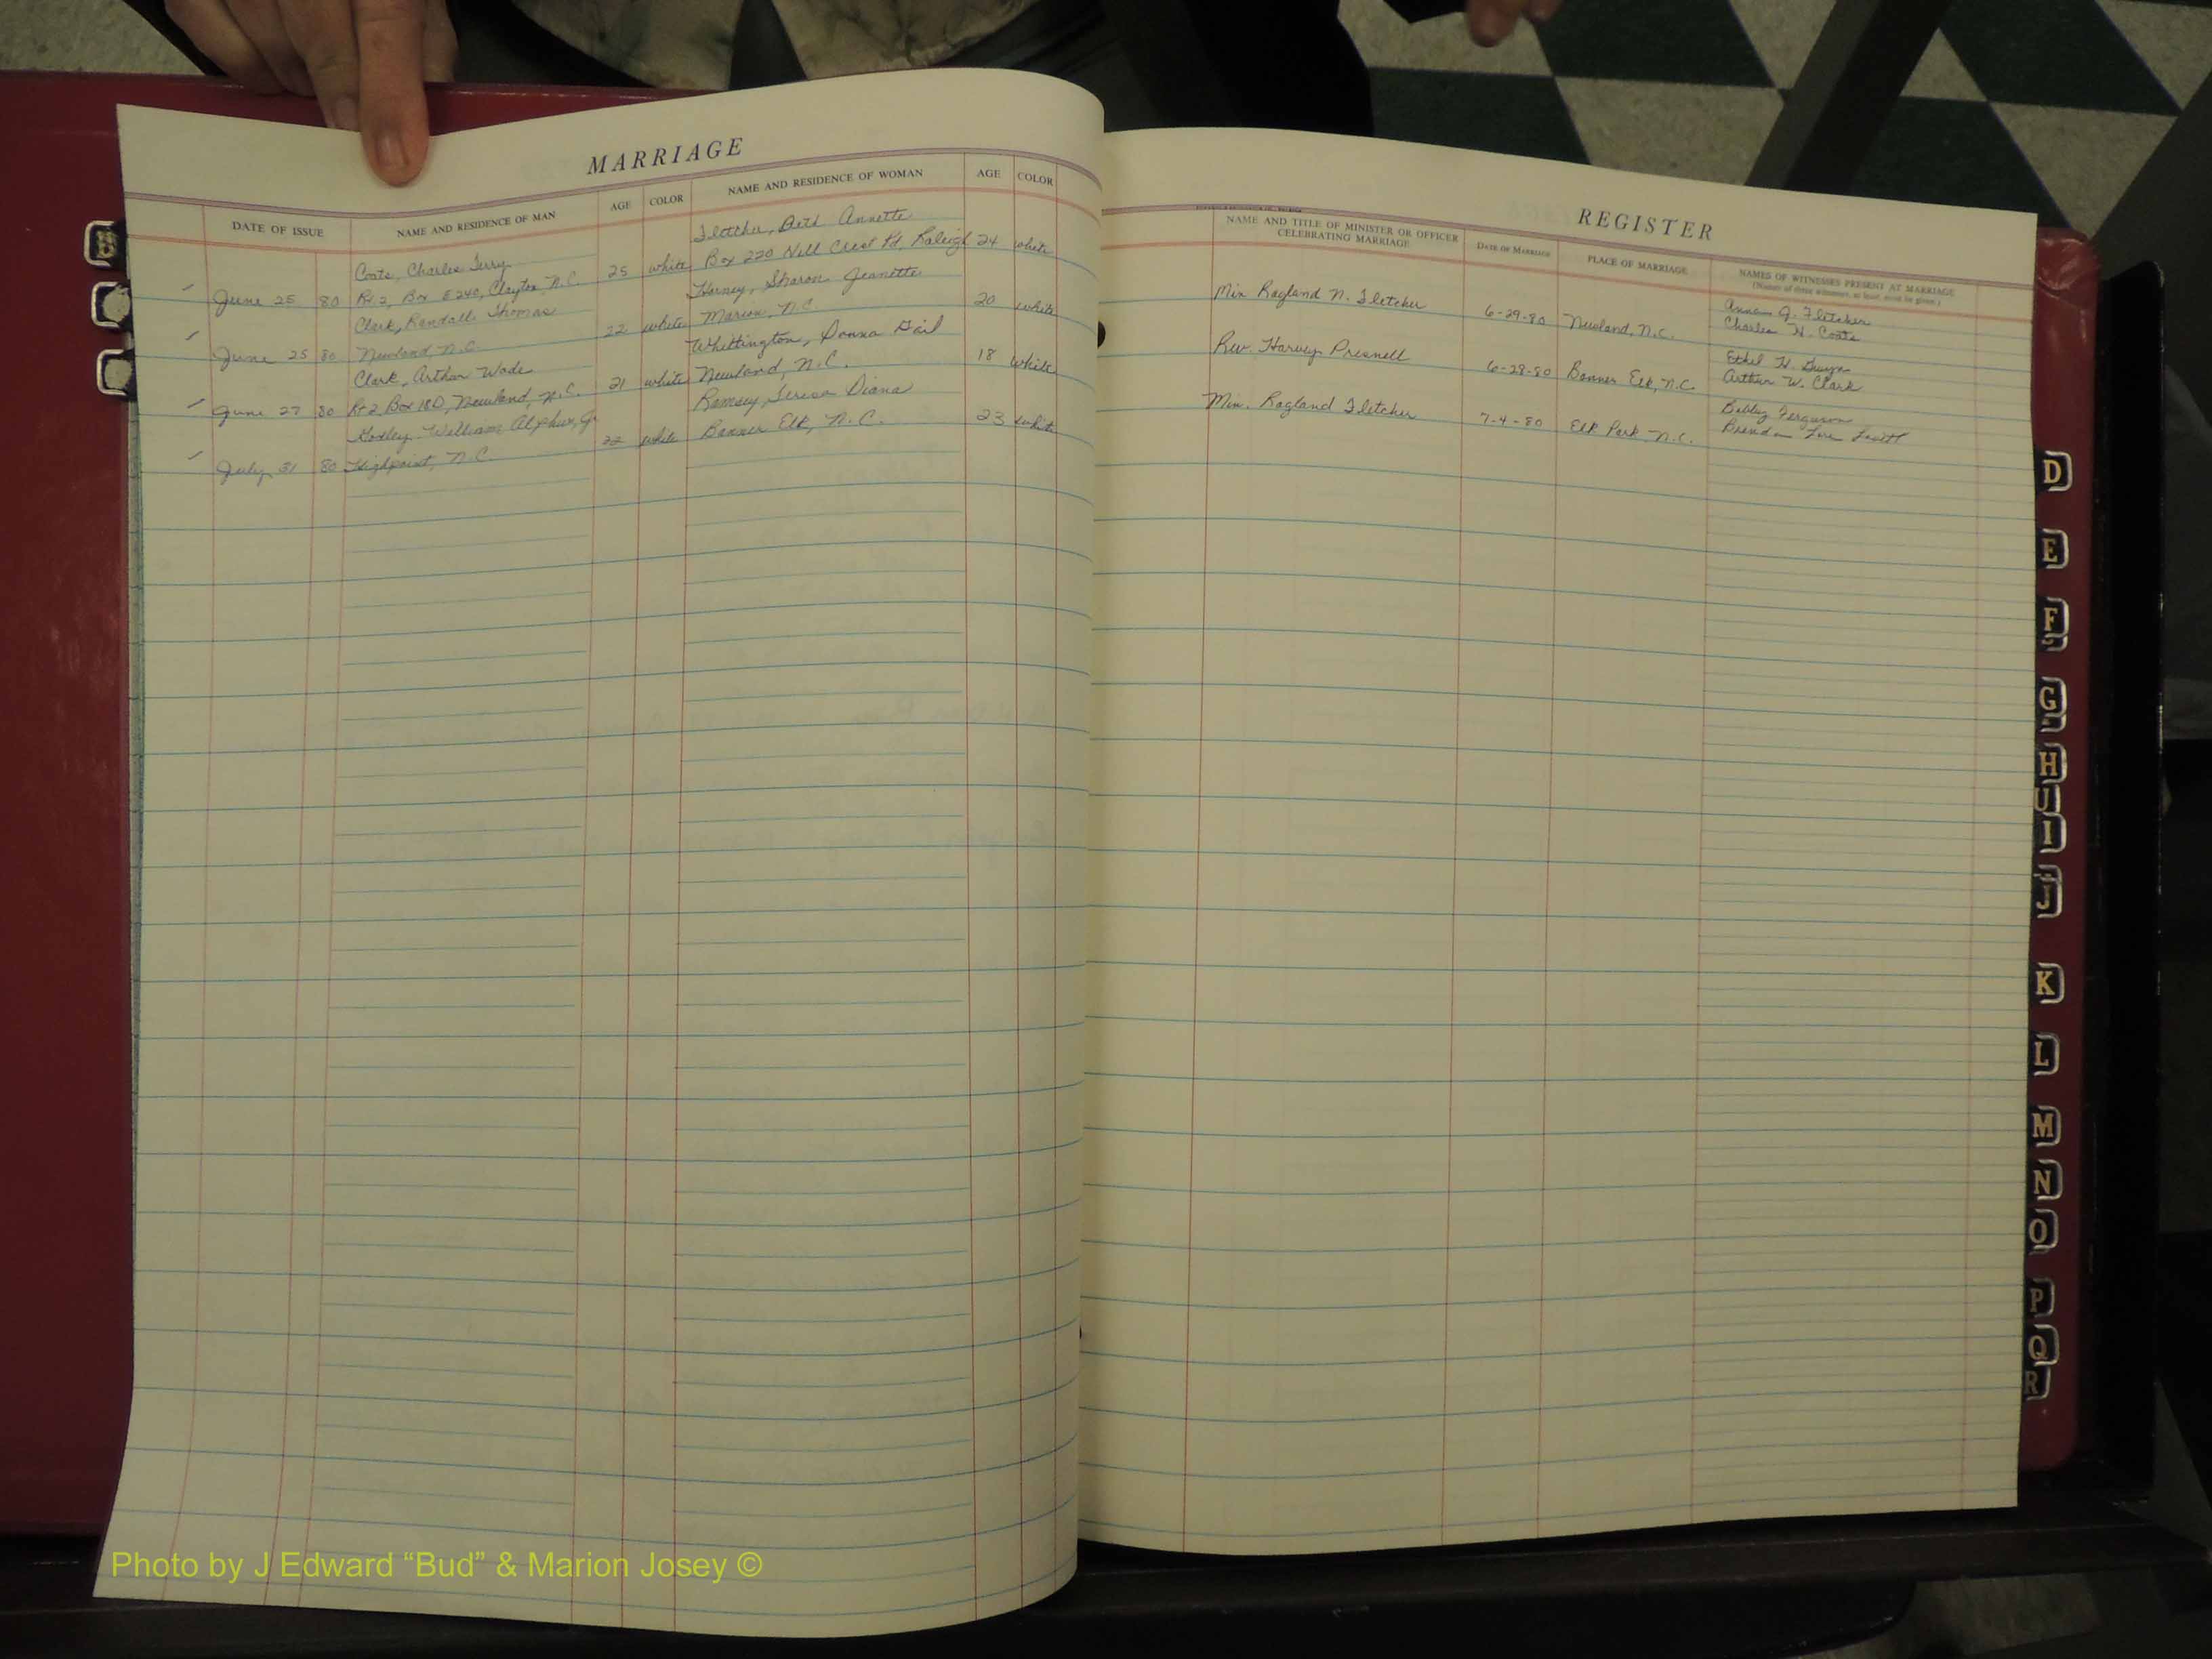 MARRIAGE
DATE OF ISSUE
NAME AND RESIDENCE OF MAN
AGE
COLOR
NAME AND RESIDENCE OF WOMAN
AGE
COLOR
Coats, Charles Terry
Fletcher, Beth Annette
June 25 80 Rt 2, Box E240, Clayton, N.C. 25 white Box 220 Hill Crest Rd, Raleigh 24 white
Clark, Randall Thomas
Sharon Jeanette
June 25 80 Newland, N.C. 22 white Marion, N.C. 20 white
Clark, Arthur Wade
Whittington, Donna Gail
June 27 80 Rt 2, Box 18D, Newland, N.C. 21 white Newland, N.C. 18 white
William Jr
Ramsey, Teresa Diana
July 31 80 Highpoint, N.C. 22 white Banner Elk, N.C. 23 white
REGISTER
NAME AND TITLE OF MINISTER OR OFFICER
CELEBRATING MARRIAGE
DATE OF MARRIAGE
PLACE OF MARRIAGE
NAMES OF WITNESSES PRESENT AT MARRIAGE
(Names of three witnesses, at least, must be given.)
Min Ragland N. Fletcher 6-29-80 Newland, N.C.
J. Fletcher
Charles H. Coats
Rev. Harvey Presnell 6-28-80 Banner Elk, N.C.
Ethel H.
Arthur W. Clark
Min. Ragland Fletcher 7-4-80 Elk Park, N.C.
Bobby Ferguson
Brenda
B
D
E
F
G
H
IJ
I
J
K
L
M
N
O
P
Q
R
Photo by J Edward “Bud” & Marion Josey ©